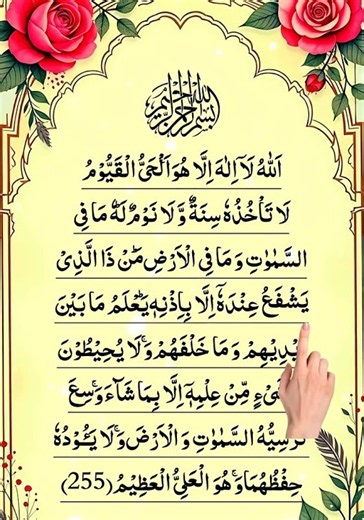 بسم الله الرحمن الرحيم
اَللّٰهُ لَاۤ اِلٰهَ اِلَّا هُوَ اَلْحَیُّ الْقَیُّوْمُ
لَا تَاْخُذُهٗ سِنَةٌ وَّلَا نَوْمٌ لَهٗ مَا فِی
السَّمٰوٰتِ وَمَا فِی الْاَرْضِ مَنْ ذَا الَّذِیْ
یَشْفَعُ عِنْدَهٗۤ اِلَّا بِاِذْنِهٖ یَعْلَمُ مَا بَیْنَ
یْدِیْهِمْ وَمَا خَلْفَهُمْ وَلَا یُحِیْطُوْنَ
یْءٍ مِّنْ عِلْمِهٖۤ اِلَّا بِمَا شَآءَ وَسِعَ
رْسِیُّهُ السَّمٰوٰتِ وَالْاَرْضَ وَلَا یَـُٔوْدُهٗ
حِفْظُهُمَا وَهُوَ الْعَلِیُّ الْعَظِیْمُ (255)